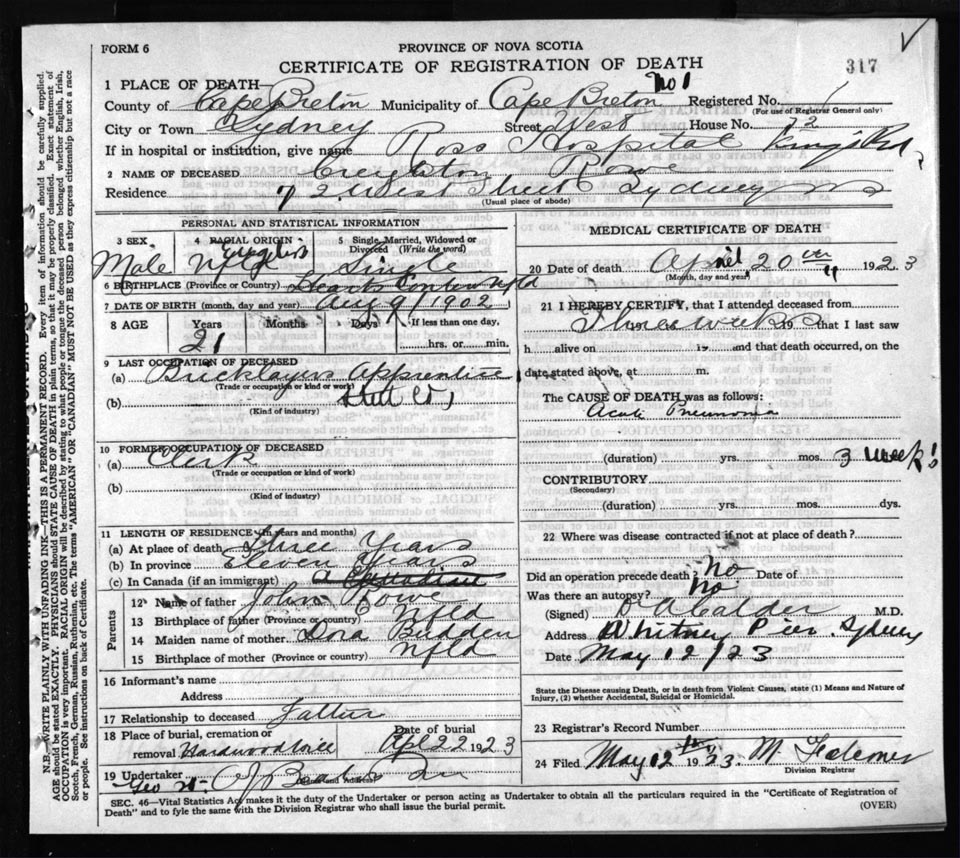 FORM 6
PROVINCE OF NOVA SCOTIA
CERTIFICATE OF REGISTRATION OF DEATH
317
1 PLACE OF DEATH—
No 1
County of Cape Breton Municipality of Cape Breton Registered No.
(For use of Registrar General only)
City or Town Sydney Street West House No. 72
If in hospital or institution, give name Ross Hospital King's Rd
2 NAME OF DECEASED Creighton Rowe
Residence 72 West Street Sydney NS
(Usual place of abode)
PERSONAL AND STATISTICAL INFORMATION
3 SEX 4 RADIAL ORIGIN 5 Single, Married, Widowed or Divorced (Write the word)
Male Nfld English Single
6 BIRTHPLACE (Province or Country) Hearts Content Nfld
7 DATE OF BIRTH (month, day and year) Aug 9/1902
8 AGE Years Months Days If less than one day,
21 hrs. or min.
9 LAST OCCUPATION OF DECEASED
(a) Bricklayers Apprentice
(Trade or occupation or kind or work)
(b)
(Kind of industry)
10 FORMER OCCUPATION OF DECEASED
(a) Clerk
(Trade or occupation or kind of work)
(b)
(Kind of industry)
11 LENGTH OF RESIDENCE (In years and months)
(a) At place of death Three Years
(b) In province Eleven Years
(c) In Canada (if an immigrant) a Canadian
Parents
12 Name of father John Rowe
13 Birthplace of father (Province or country) Nfld
14 Maiden name of mother Dora Budden
15 Birthplace of mother (Province or country) Nfld
16 Informant's name
Address
17 Relationship to deceased Father
18 Place of burial, cremation or Date of burial
removal Hardwood Hill Apl 22 1923
19 Undertaker
MEDICAL CERTIFICATE OF DEATH
20 Date of death April 20 1923
(Month, day and year)
21 I HEREBY CERTIFY, that I attended deceased from
Three weeks 19 that I last saw
h alive on 19 and that death occurred, on the
date stated above, at m.
The CAUSE OF DEATH was as follows:
Acute Pneumonia
(duration) yrs. mos. 3 weeks
CONTRIBUTORY
(Secondary)
(duration) yrs. mos. dys.
22 Where was disease contracted if not at place of death?
Did an operation precede death No Date of
Was there an autopsy? No
(Signed) D A Calder M.D.
Address Whitney Pier, Sydney
Date May 12/23
State the Disease causing Death, or in death from Violent Causes, state (1) Means and Nature of
Injury, (2) whether Accidental, Suicidal or Homicidal.
23 Registrar's Record Number
24 Filed May 12 1923
Division Registrar
SEC. 46—Vital Statistics Act makes it the duty of the Undertaker or person acting as Undertaker to obtain all the particulars required in the "Certificate of Registration of
Death" and to fyle the same with the Division Registrar who shall issue the burial permit.
(OVER)
N.B.—WRITE PLAINLY WITH UNFADING INK—THIS IS A PERMANENT RECORD. Every item of information should be carefully supplied.
AGE should be stated EXACTLY. PHYSICIANS should STATE CAUSE OF DEATH in plain terms, so that it may be properly classified. Exact statement of
OCCUPATION is very important. RACIAL ORIGIN will be described by stating to what people or tongue the deceased person belonged whether English, Irish,
Scotch, French, German, Russian, Ruthenian, etc. The terms "AMERICAN" OR "CANADIAN" MUST NOT BE USED as they express citizenship but not a race
or people. See instructions on back of Certificate.